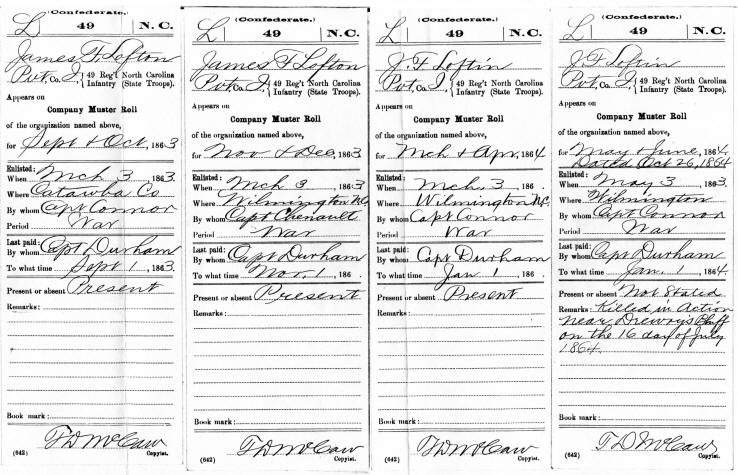 (Confederate.)
L 49 N. C.
James F. Lofton
Pvt, Co. I, 49 Reg't North Carolina
Infantry (State Troops).
Appears on
Company Muster Roll
of the organization named above,
for Sept & Oct, 1863
Enlisted:
When Mch 3, 1863
Where Catawba Co
By whom Capt Connor
Period War
Last paid:
By whom Capt Durham
To what time Sept 1, 1863.
Present or absent Present
Remarks:
Book mark:
F D McCaw
(642) Copyist.
(Confederate.)
L 49 N. C.
James F Lofton
Pvt, Co. I, 49 Reg't North Carolina
Infantry (State Troops).
Appears on
Company Muster Roll
of the organization named above,
for Nov & Dec, 1863
Enlisted:
When Mch 3, 1863
Where Wilmington N.C.
By whom Capt Chenault
Period War
Last paid:
By whom Capt Durham
To what time Nov. 1, 186 .
Present or absent Present
Remarks:
Book mark:
F D McCaw
(642) Copyist.
(Confederate.)
L 49 N. C.
J. F Loftin
Pvt, Co. I, 49 Reg't North Carolina
Infantry (State Troops).
Appears on
Company Muster Roll
of the organization named above,
for Mch & Apr, 1864
Enlisted:
When Mch. 3, 186 .
Where Wilmington N.C.
By whom Capt Connor
Period War
Last paid:
By whom Capt Durham
To what time Jan 1, 186 .
Present or absent Present
Remarks:
Book mark:
F D McCaw
(642) Copyist.
(Confederate.)
L 49 N. C.
J F Loftin
Pvt, Co. I, 49 Reg't North Carolina
Infantry (State Troops).
Appears on
Company Muster Roll
of the organization named above,
for May & June, 1864.
Dated Oct 26, 1864
Enlisted:
When May, 3, 1863.
Where Wilmington
By whom Capt Connor
Period War
Last paid:
By whom Capt Durham
To what time Jan. 1, 1864.
Present or absent Not Stated
Remarks: Killed in Action
near Drewry's Bluff
on the 16 day of July
1864.
Book mark:
F D McCaw
(642) Copyist.